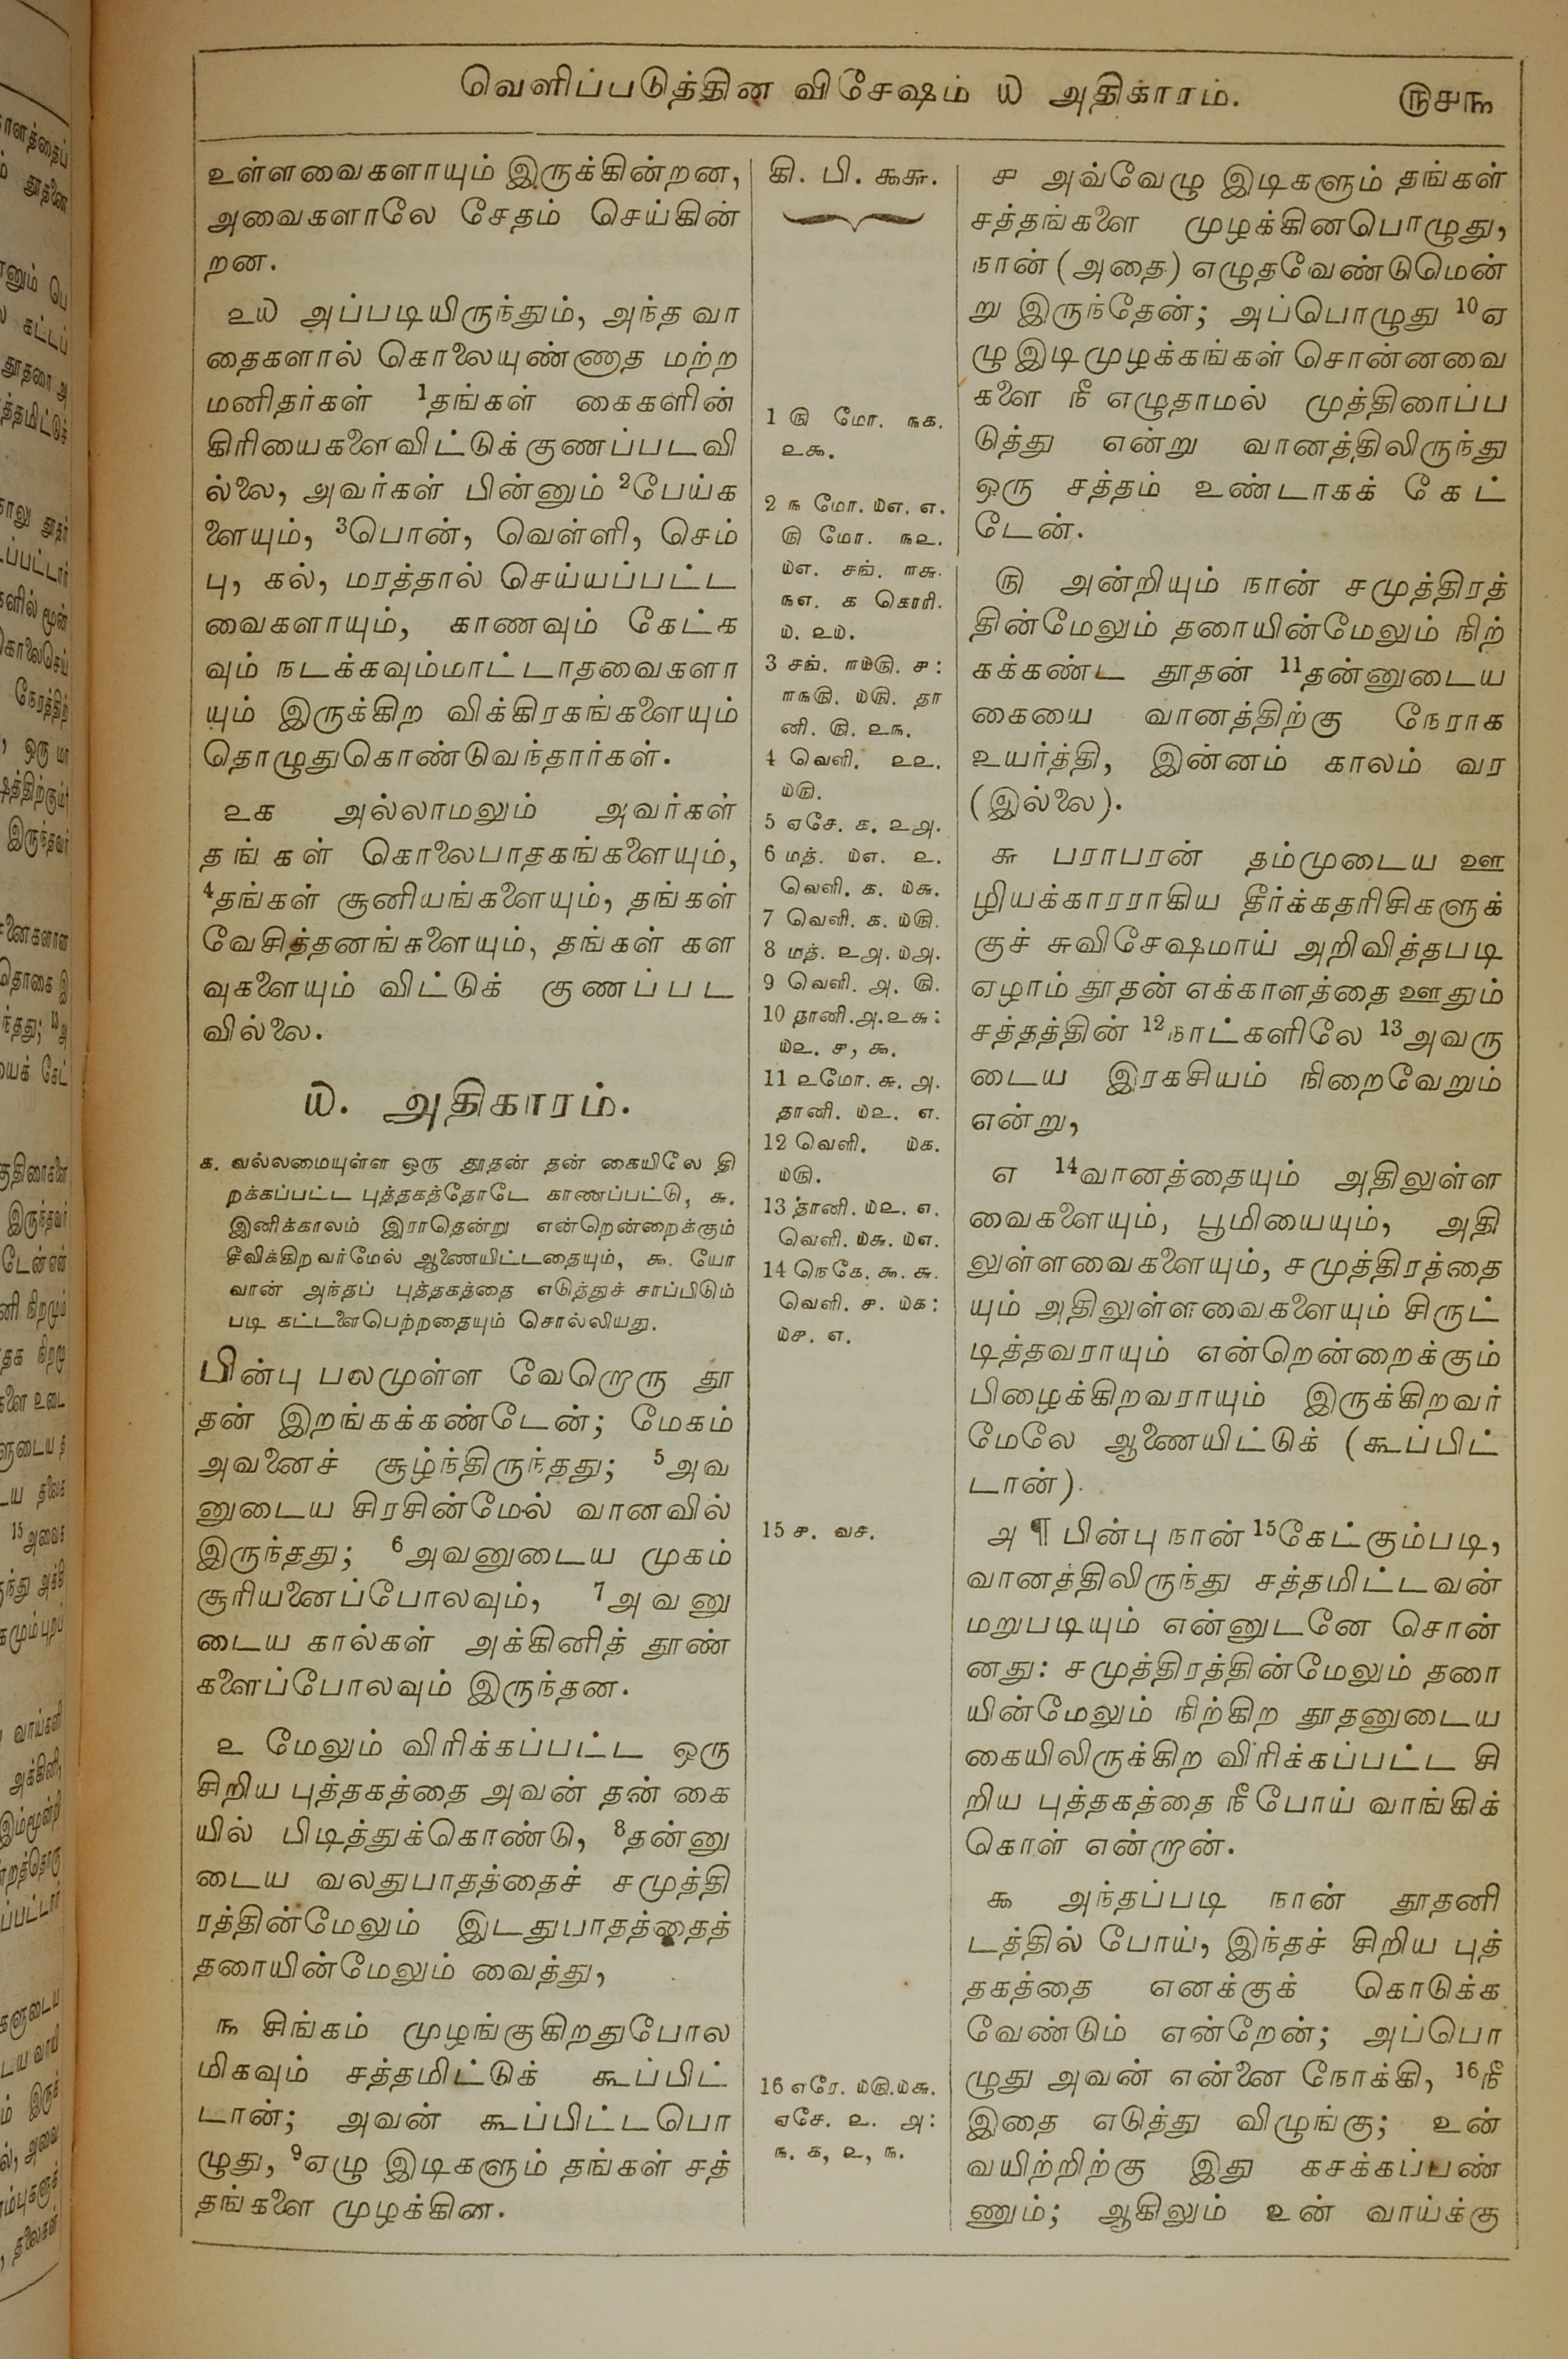 வெளிப்படுத்தின விசேஷம் ௰ அதிகாரம். ௫௪௩
உள்ளவைகளாயும் இருக்கின்றன,
அவைகளாலே சேதம் செய்கின்
றன.
௨௰ அப்படியிருந்தும், அந்த வா
தைகளால் கொலையுண்ணாத மற்ற
மனிதர்கள் 1தங்கள் கைகளின்
கிரியைகளைவிட்டுக்குணப்படவி
ல்லை, அவர்கள் பின்னும் 2பேய்க
ளையும், 3பொன், வெள்ளி, செம்
பு, கல், மரத்தால் செய்யப்பட்ட
வைகளாயும், காணவும் கேட்க
வும் நடக்கவும்மாட்டாதவைகளா
யும் இருக்கிற விக்கிரகங்களையும்
தொழுதுகொண்டுவந்தார்கள்.
௨௧ அல்லாமலும் அவர்கள்
தங்கள் கொலைபாதகங்களையும்,
4தங்கள் சூனியங்களையும், தங்கள்
வேசித்தனங்களையும், தங்கள் கள
வுகளையும் விட்டுக் குணப்பட
வில்லை.
௰. அதிகாரம்.
௧. வல்லமையுள்ள ஒரு தூதன் தன் கையிலே தி
றக்கப்பட்ட புத்தகத்தோடே காணப்பட்டு, ௬.
இனிக்காலம் இராதென்று என்றென்றைக்கும்
சீவிக்கிறவர்மேல் ஆணையிட்டதையும், ௯. யோ
வான் அந்தப் புத்தகத்தை எடுத்துச் சாப்பிடும்
படி கட்டளைபெற்றதையும் சொல்லியது.
பின்பு பலமுள்ள வேறொரு தூ
தன் இறங்கக்கண்டேன்; மேகம்
அவனைச் சூழ்ந்திருந்தது; 5அவ
னுடைய சிரசின்மேல் வானவில்
இருந்தது; 6அவனுடைய முகம்
சூரியனைப்போலவும், 7அவனு
டைய கால்கள் அக்கினித் தூண்
களைப்போலவும் இருந்தன.
௨ மேலும் விரிக்கப்பட்ட ஒரு
சிறிய புத்தகத்தை அவன் தன் கை
யில் பிடித்துக்கொண்டு, 8தன்னு
டைய வலதுபாதத்தைச் சமுத்தி
ரத்தின்மேலும் இடதுபாதத்தைத்
தரையின்மேலும் வைத்து,
௩ சிங்கம் முழங்குகிறதுபோல
மிகவும் சத்தமிட்டுக் கூப்பிட்
டான்; அவன் கூப்பிட்டபொ
ழுது, 9ஏழு இடிகளும் தங்கள் சத்
தங்களை முழக்கின.
கி. பி. ௯௬.
1 ௫ மோ. ௩௧.
௨௯.
2 ௩ மோ. ௰௭. ௭.
௫ மோ. ௩௨.
௰௭. சங். ௱௬.
௩௭. ௧ கொரி.
௰. ௨௰.
3 சங். ௱௰௫. ௪:
௱௩௫. ௰௫. தா
னி. ௫. ௨௩.
4 வெளி. ௨௨.
௰௫.
5 ஏசே. ௧. ௨௮.
6 மத். ௰௭. ௨.
வெளி. ௧. ௰௬.
7 வெளி. ௧. ௰௫.
8 மத். ௨௮. ௰௮.
9 வெளி. ௮. ௫.
10 தானி.௮.௨௬:
௰௨. ௪, ௯.
11 ௨மோ. ௬. ௮.
தானி. ௰௨. ௭.
12 வெளி. ௰௧.
௰௫.
13 தானி. ௰௨. ௭.
வெளி. ௰௬. ௰௭.
14 நெகே. ௯. ௬.
வெளி. ௪. ௰௧:
௰௪. ௭.
15 ௪. வச.
16 எரே. ௰௫.௰௬.
ஏசே. ௨. ௮:
௩. ௧, ௨, ௩.
௪ அவ்வேழு இடிகளும் தங்கள்
சத்தங்களை முழக்கினபொழுது,
நான் (அதை) எழுதவேண்டுமென்
று இருந்தேன்; அப்பொழுது 10ஏ
ழு இடிமுழக்கங்கள் சொன்னவை
களை நீ எழுதாமல் முத்திரைப்ப
டுத்து என்று வானத்திலிருந்து
ஒரு சத்தம் உண்டாகக் கேட்
டேன்.
௫ அன்றியும் நான் சமுத்திரத்
தின்மேலும் தரையின்மேலும் நிற்
கக்கண்ட தூதன் 11தன்னுடைய
கையை வானத்திற்கு நேராக
உயர்த்தி, இன்னம் காலம் வர
(இல்லை).
௬ பராபரன் தம்முடைய ஊ
ழியக்காரராகிய தீர்க்கதரிசிகளுக்
குச் சுவிசேஷமாய் அறிவித்தபடி
ஏழாம் தூதன் எக்காளத்தை ஊதும்
சத்தத்தின் 12நாட்களிலே 13அவரு
டைய இரகசியம் நிறைவேறும்
என்று,
௭ 14வானத்தையும் அதிலுள்ள
வைகளையும், பூமியையும், அதி
லுள்ளவைகளையும், சமுத்திரத்தை
யும் அதிலுள்ளவைகளையும் சிருட்
டித்தவராயும் என்றென்றைக்கும்
பிழைக்கிறவராயும் இருக்கிறவர்
மேலே ஆணையிட்டுக் (கூப்பிட்
டான்).
௮ ¶ பின்பு நான் 15கேட்கும்படி,
வானத்திலிருந்து சத்தமிட்டவன்
மறுபடியும் என்னுடனே சொன்
னது: சமுத்திரத்தின்மேலும் தரை
யின்மேலும் நிற்கிற தூதனுடைய
கையிலிருக்கிற விரிக்கப்பட்ட சி
றிய புத்தகத்தை நீபோய் வாங்கிக்
கொள் என்றான்.
௯ அந்தப்படி நான் தூதனி
டத்தில் போய், இந்தச் சிறிய புத்
தகத்தை எனக்குக் கொடுக்க
வேண்டும் என்றேன்; அப்பொ
ழுது அவன் என்னை நோக்கி, 16நீ
இதை எடுத்து விழுங்கு; உன்
வயிற்றிற்கு இது கசக்கப்பண்
ணும்; ஆகிலும் உன் வாய்க்கு